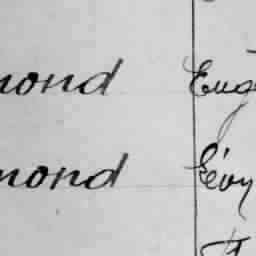 mond Eug
mond Lévy